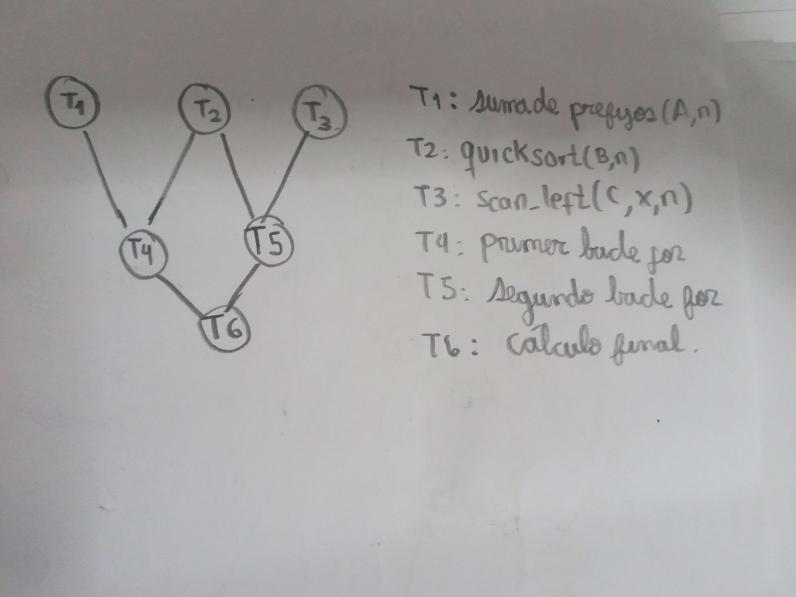 T1 T2 T3
T4 T5
T6
T1: suma de prefijos (A,n)
T2: quicksort(B,n)
T3: scan_left(C,x,n)
T4: primer bucle for
T5: segundo bucle for
T6: cálculo final.